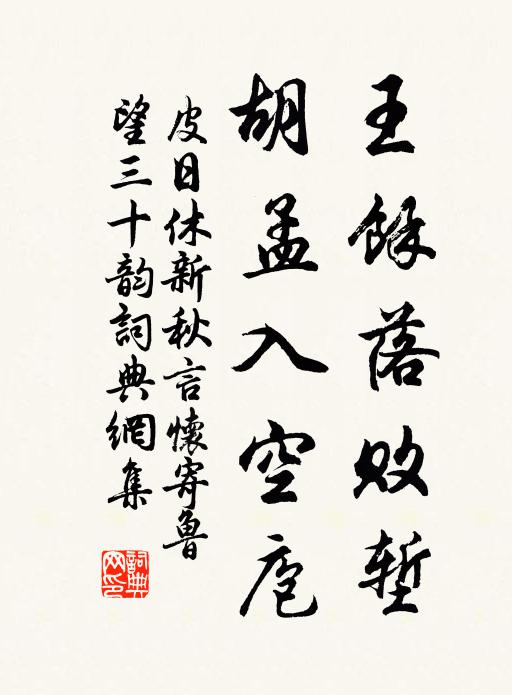 王餘落敗塹
胡孟入空庖
皮日休新秋言懷寄魯
望三十韵詞典網集
詞典網印